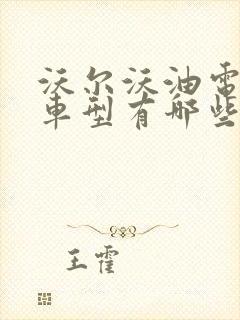 沃尔沃油電
車型有哪些
王霍